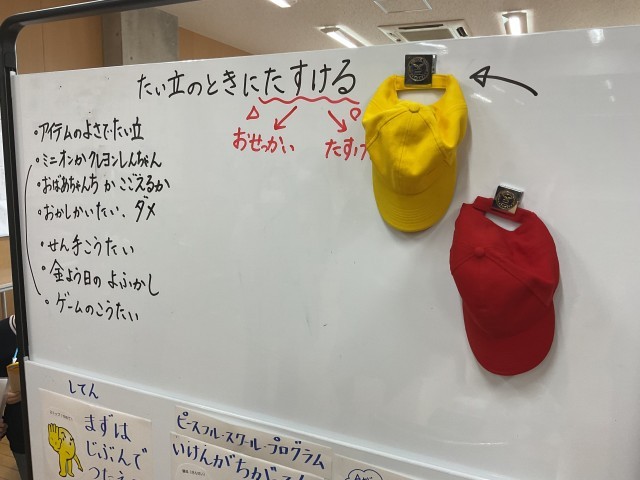 たい立のときにたすける
△ ○
おせっかい たすけ
・アイテムのよさでたい立
・ミニオンかクレヨンしんちゃん
・おばあちゃんち か こごえるか
・おかしかいたい、ダメ
・せん手こうたい
・金よう日の よふかし
・ゲームのこうたい
してん
まずは
じぶんで
つたえ
ピースフル・スクール・プログラム
いけんがちがって